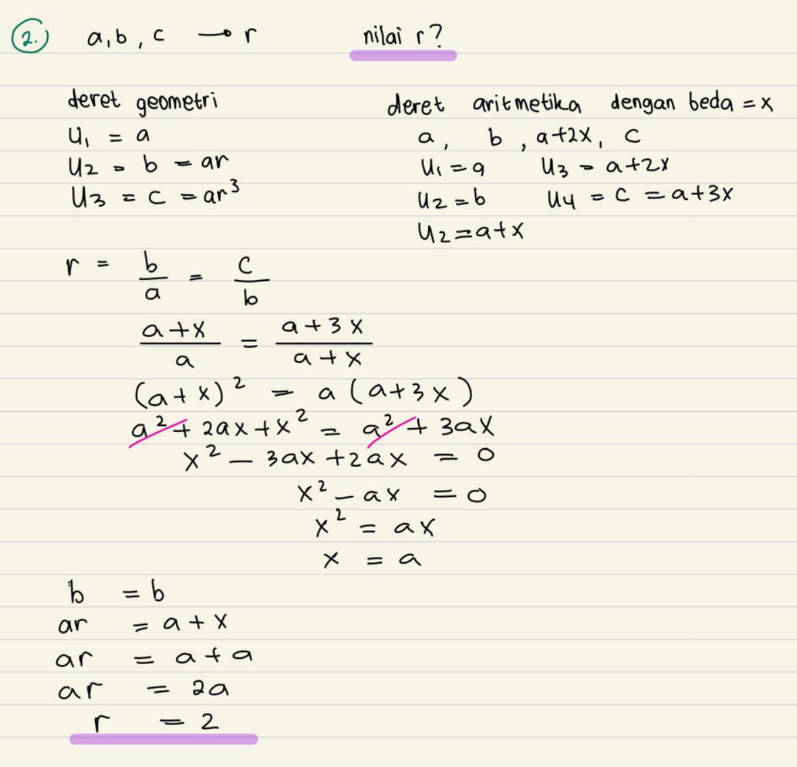 2. a, b, c → r nilai r?
deret geometri
U₁ = a
U₂ = b = ar
U₃ = c = ar³
deret aritmetika dengan beda = x
a, b, a+2x, c
U₁ = a U₃ = a+2x
U₂ = b U₄ = c = a+3x
U₂ = a+x
r = b/a = c/b
(a+x)/a = (a+3x)/(a+x)
(a+x)² = a(a+3x)
a² + 2ax + x² = a² + 3ax
x² - 3ax + 2ax = 0
x² - ax = 0
x² = ax
x = a
b = b
ar = a+x
ar = a+a
ar = 2a
r = 2